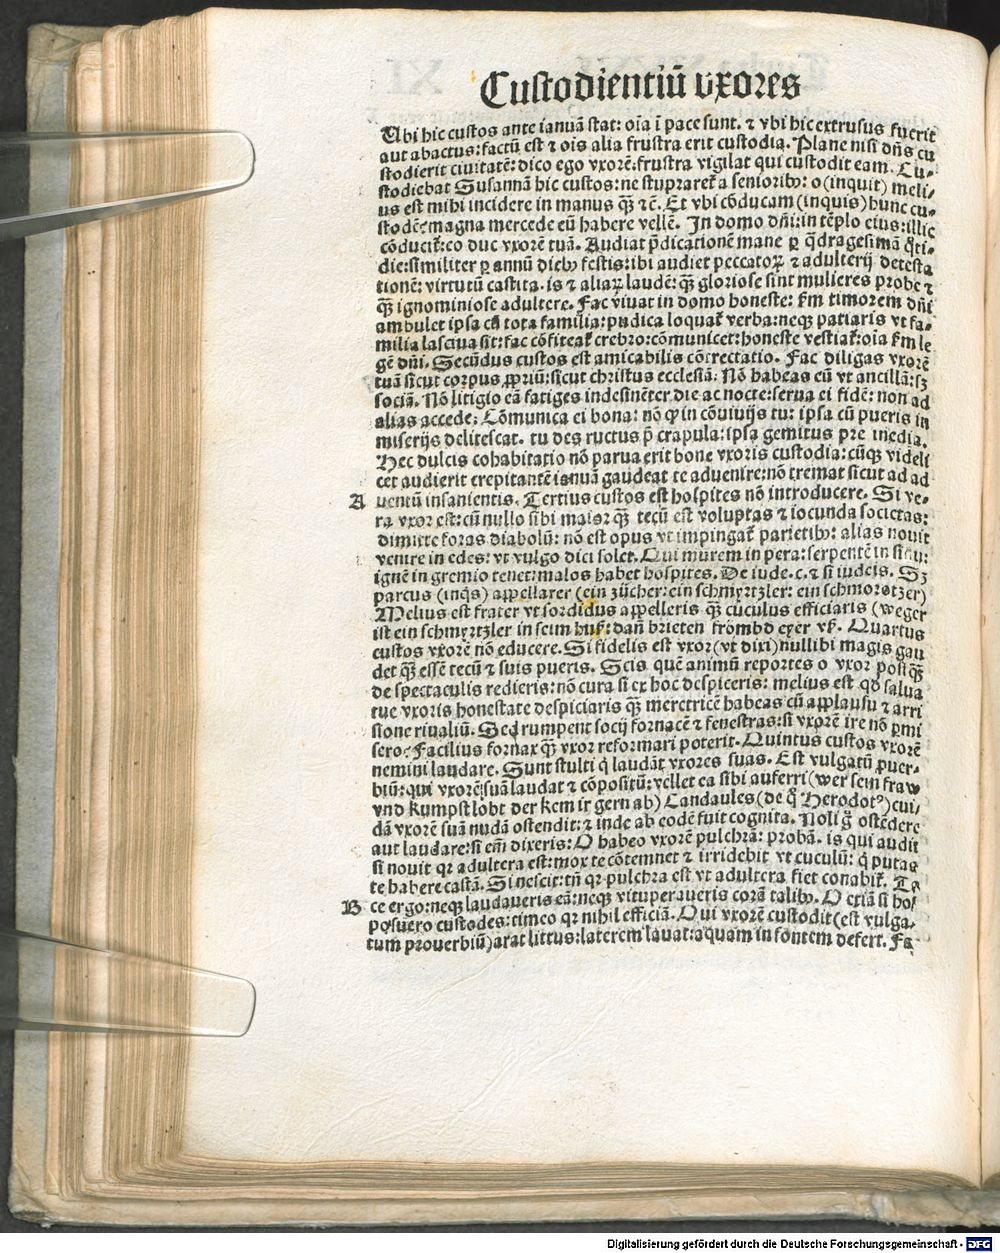 Custodientiū vxores
Ubi hic custos ante ianuā stat: oīa ī pace sunt. ⁊ vbi hic extrusus fuerit
aut abactus: factū est ⁊ oīs alia frustra erit custodia. Plane nisi dn̄s cu
stodierit ciuitatē: dico ego vxorē: frustra vigilat qui custodit eam. Cu⸗
stodiebat Susannā hic custos: ne stupraret᷑ a seniorib⁹: o (inquit) meli⸗
us est mihi incidere in manus qꝫ̄ ⁊c̄. Et vbi cōducam (inquis) hunc cu⸗
stodē: magna mercede eū habere vellē. In domo dn̄i: in tēplo eius: illic
cōducit᷑: eo duc vxorē tuā. Audiat p̄dicationē mane ꝑ q̄dragesimā q̊ti⸗
die: similiter ꝑ annū dieb⁹ festis: ibi audiet peccatoꝝ ⁊ adulterij detesta
tionē: virtutū castita. is ⁊ aliaꝝ laudē: qꝫ̄ gloriose sint mulieres probe ⁊
qꝫ̄ ignominiose adultere. Fac viuat in domo honeste: fm timorem dn̄i
ambulet ipsa cū tota familia: pudica loquat᷑ verba: neqꝫ patiaris vt fa⸗
milia lasciua sit: fac cōfiteat᷑ crebro: cōmunicet: honeste vestiat᷑: oīa fm le
gē dn̄i. Secūdus custos est amicabilis cōtrectatio. Fac diligas vxorē
tuā sicut corpus ꝓpriū: sicut christus ecclesiā: Nō habeas eū vt ancillā: sꝫ
sociā. Nō litigio eā fatiges indesinēter die ac nocte: serua ei fidē: non ad
alias accede: Cōmunica ei bona: nō ꝙ in cōuiuijs tu: ipsa cū pueris in
miserijs delitescat. tu des ructus p̄ crapula: ipsa gemitus pre inedia.
Hec dulcis cohabitatio nō parua erit bone vxoris custodia: cūqꝫ videli
cet audierit crepitantē ianuā gaudeat te aduenire: nō tremat sicut ad ad
A uentū insanientis. Tertius custos est hospites nō introducere. Si ve⸗
ra vxor est: cū nullo sibi maior qꝫ̄ tecū est voluptas ⁊ iocunda societas:
dimitte foras diabolū: nō est opus vt impingat᷑ parietib⁹: alias nouit
venire in edes: vt vulgo dici solet. Qui murem in pera: serpentē in sinu:
ignē in gremio tenet: malos habet hospites. De iude. c. ⁊ si iudeis. Sꝫ
parcus (inq̇s) appellarer (ein zücher: ein schmyrtzler: ein schmorotzer)
Melius est frater vt sordidus appelleris qꝫ̄ cuculus efficiaris (weger
ist ein schmyrtzler in seim huß: dañ brieten frömbd eyer vß. Quartus
custos vxorē nō educere. Si fidelis est vxor (vt dixi) nullibi magis gau
det qꝫ̄ esse tecū ⁊ suis pueris. Scis quē animū reportes o vxor postqꝫ̄
de spectaculis redieris: nō cura si ex hoc despiceris: melius est qd̄ salua
tue vxoris honestate despiciaris qꝫ̄ meretricē habeas cū applausu ⁊ arri
sione riualiū. Sed rumpent socij fornacē ⁊ fenestras: si vxorē ire nō ꝑmi
sero: Facilius fornax qꝫ̄ vxor reformari poterit. Quintus custos vxorē
nemini laudare. Sunt stulti q̇ laudāt vxores suas. Est vulgatū ꝓuer⸗
biū: qui vxorē suā laudat ⁊ cōpositū: vellet ea sibi auferri (wer sein fraw
vnd kumpst lobt der kem ir gern ab) Candaules (de q̊ Herodot⁹) cui⸗
dā vxorē suā nudā ostendit: ⁊ inde ab eodē fuit cognita. Noli g̊ ostēdere
aut laudare: si em̄ dixeris: O habeo vxorē pulchrā: probā. is qui audit
si nouit qꝛ adultera est: mox te cōtemnet ⁊ irridebit vt cuculū: q̇ putas
te habere castā. Si nescit: tn̄ qꝛ pulchra est vt adultera fiet conabit᷑. Ta
B ce ergo: neqꝫ laudaueris eā: neqꝫ vituperaueris corā talib⁹. O etiā si hos
posuero custodes: timeo qꝛ nihil efficiā. Qui vxorē custodit (est vulga⸗
tum prouerbiū) arat littus: laterem lauat: aquam in fontem defert. Fa⸗
Digitalisierung gefördert durch die Deutsche Forschungsgemeinschaft - DFG